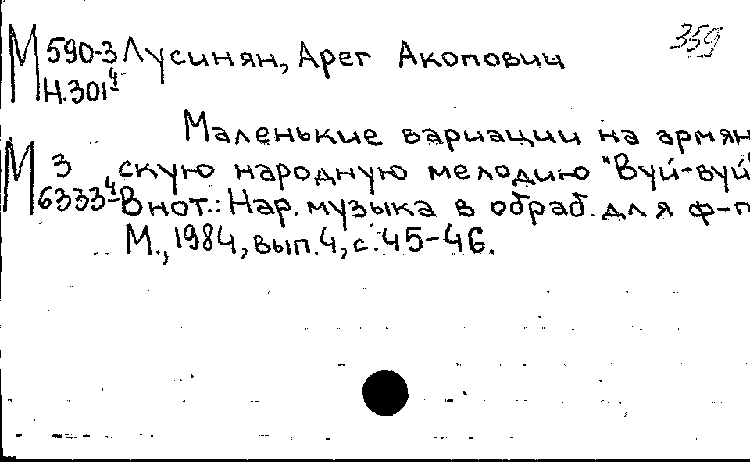 М 590-3 Лусинян, Арег Акопович 359
Н.301⁴
Маленькие вариации на армян
М 3 скую народную мелодию "Вуй-вуй"
6333⁴ В нот.: Нар. музыка в обраб. для ф-п
М., 1984, вып. 4, с. 45-46.